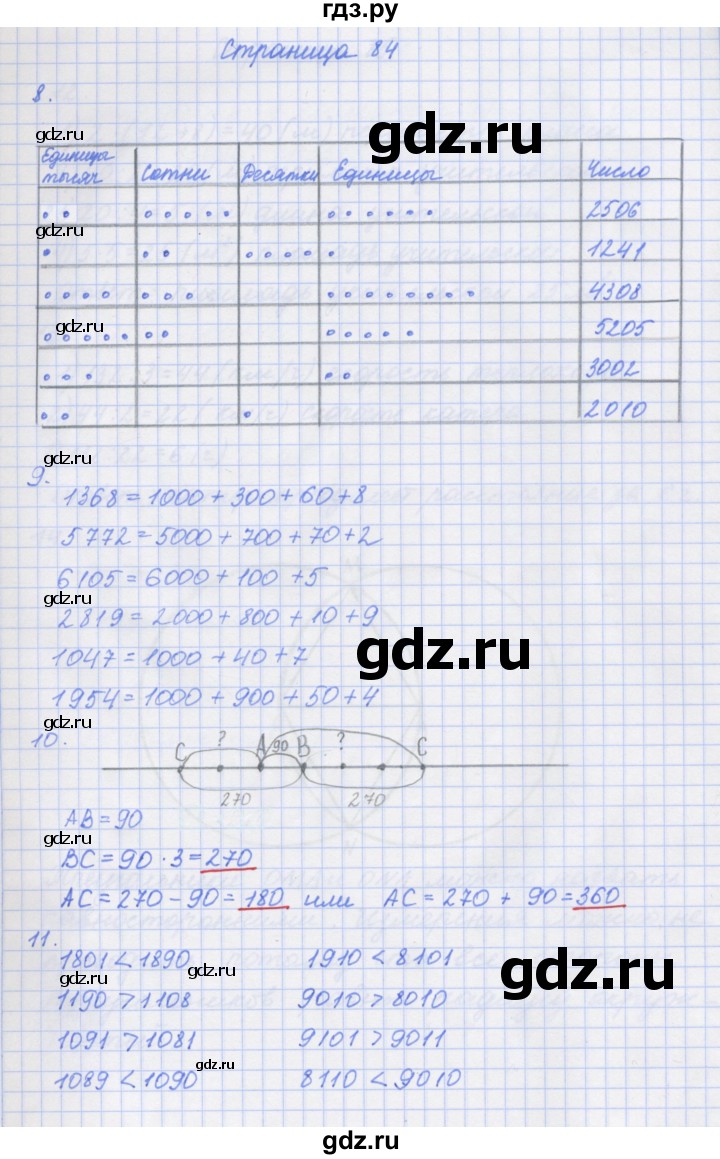 гдз.ру
Страница 84
8.
gdz.ru
gdz.ru
Единицы тысяч Сотни Десятки Единицы Число
2506
gdz.ru
1241
4308
gdz.ru
5205
3002
2010
gdz.ru
9.
1368 = 1000 + 300 + 60 + 8
5772 = 5000 + 700 + 70 + 2
6105 = 6000 + 100 + 5
gdz.ru
2819 = 2000 + 800 + 10 + 9
gdz.ru
1047 = 1000 + 40 + 7
1954 = 1000 + 900 + 50 + 4
10.
C ? A 90 B ? C
270 270
AB = 90
gdz.ru
BC = 90 · 3 = 270
AC = 270 - 90 = 180 или AC = 270 + 90 = 360
11.
1801 < 1890 1910 < 8101
gdz.ru
gdz.ru
1190 > 1108 9010 > 8010
1091 > 1081 9101 > 9011
gdz.ru
1089 < 1090 8110 < 9010
gdz.ru